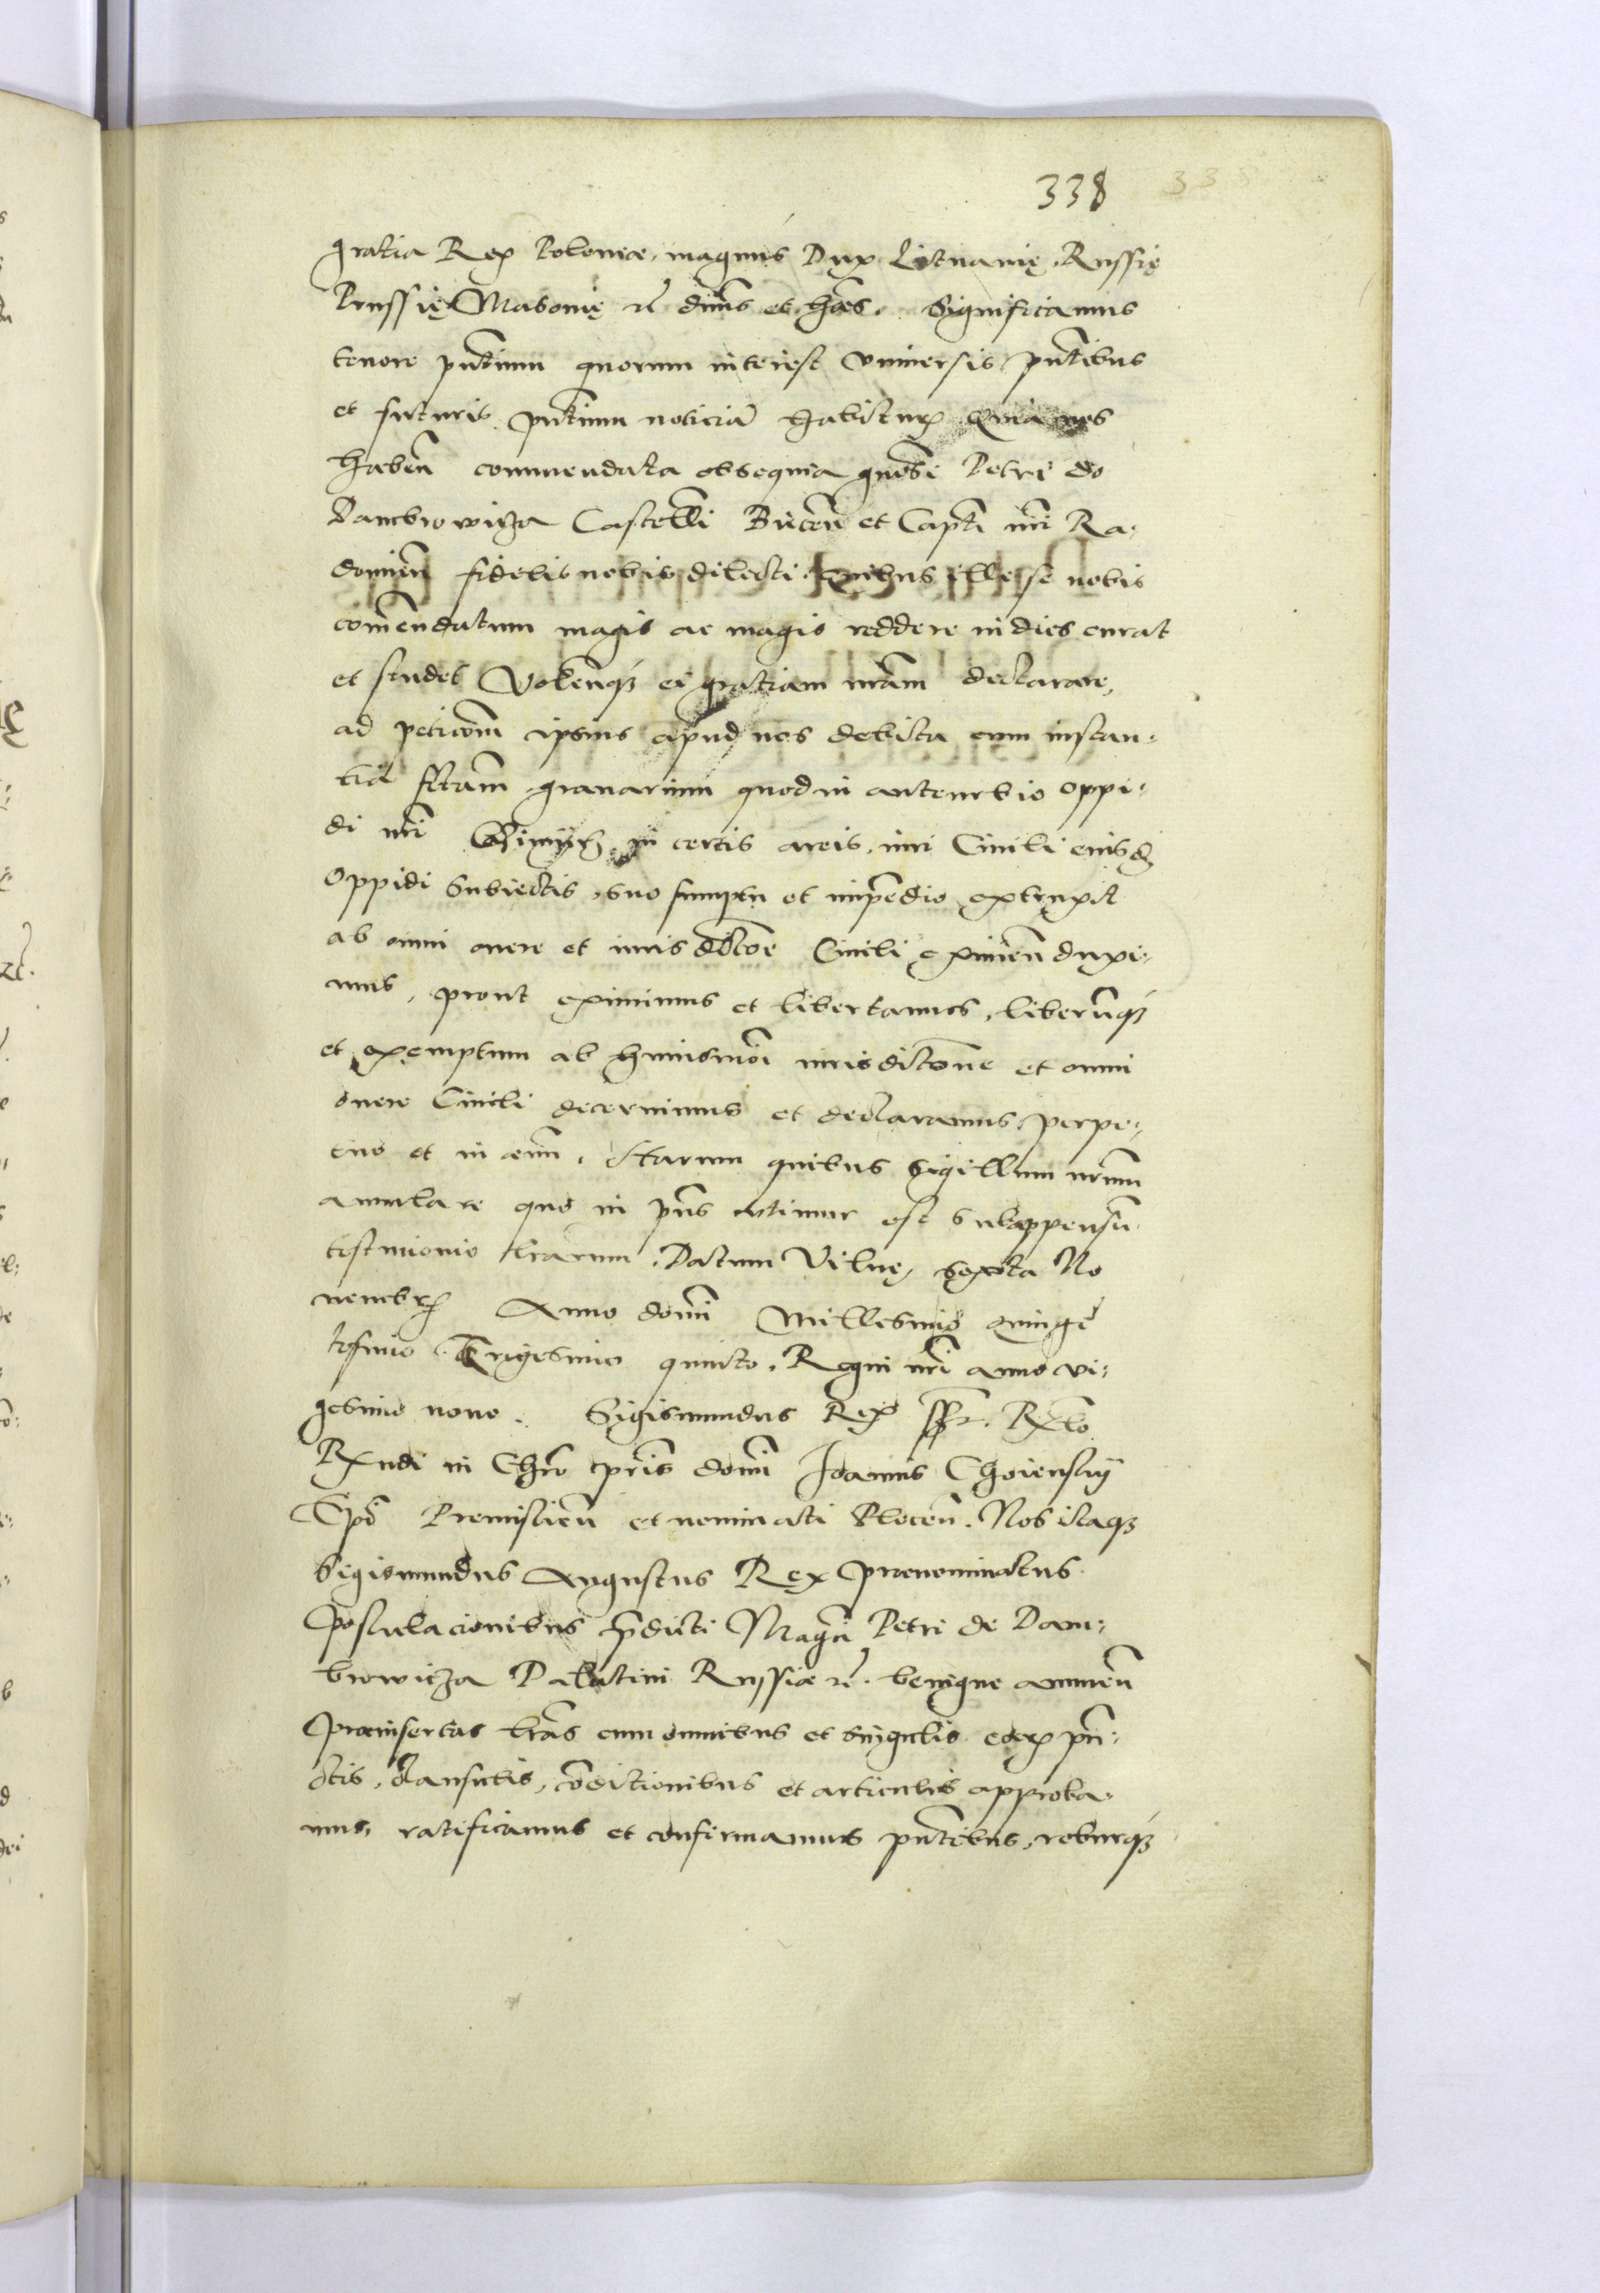 338
gratia Rex Poloniae, magnus Dux Lituanię, Russię
Prussię Masouię rc̃ dñns et hæs. Significamus
tenore pñtium quorum interest vniuersis pñtibus
et futuris pñtium noticiã habitur. Quia nos
habeñ commendata obsequia gñosi Petri de
Dambrowicza Castellĩ Biiceñ et Capti nri Ra-
domieñ fidelis nobis dilecti. quibus ille se nobis
com̃endatum magis ac magis reddere in dies curat
et studet Volenq; ei gratiam nram declarare,
ad peticõm ipsius apud nos debita cum instan-
tia fctam granarium quod in anteurbio oppi-
di nri in certis areis, iuri Ciuili eiusd
Oppidi subiectis, suo sumptu et impẽdio extruxit
ab omni onere et iurisdctõe Ciuili eximieñ duxi-
mus, prout eximimus et libertamus, liberũq;
et exemptum ab huiusmõi iurisdictõne et omni
onere Ciuili decernimus et declaramus, perpe-
tuo et in æuũ. Harum quibus sigillum nrum
annulare quo in pñs vtimur est subappensũ
testimonio lrarum. Datum Vilnę, sexta No
uembr Anno domĩ Millesimo Quingẽ
tesimo Trigesimo quinto. Regni nri anno vi-
gesimo nono. Sigismundus Rex sst. Rlo
Rndi in Chro pris domĩ Joannis Choienskij
Epõ Premislieñ et nominati Ploceñ. Nos itaq;
Sigismundus Augustus Rex praenominatus
postulacionibus p̃dicti Magci Petri de Dam-
browicza Palatini Russiæ rc̃. benigne annueñ
præinsertas lras cum omnibus et singulis eor pũ-
ctis, clausulis, cõditionibus et articulis approba-
mus, ratificamus et confirmamus pñtibus, roburq;